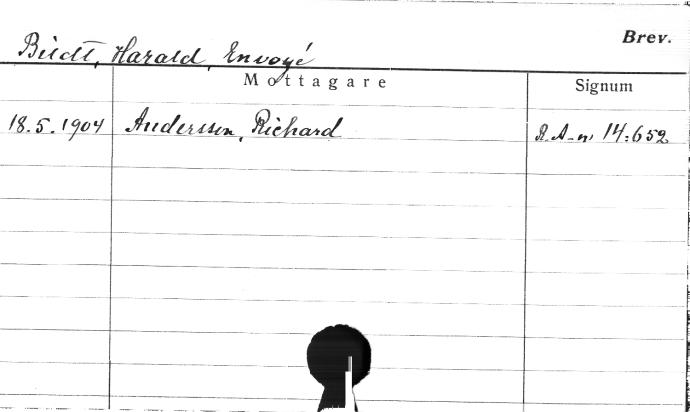 Brev.
Bildt, Harald, Envoyé
Mottagare Signum
18.5.1904 Andersson, Richard R.A-n, 14:652